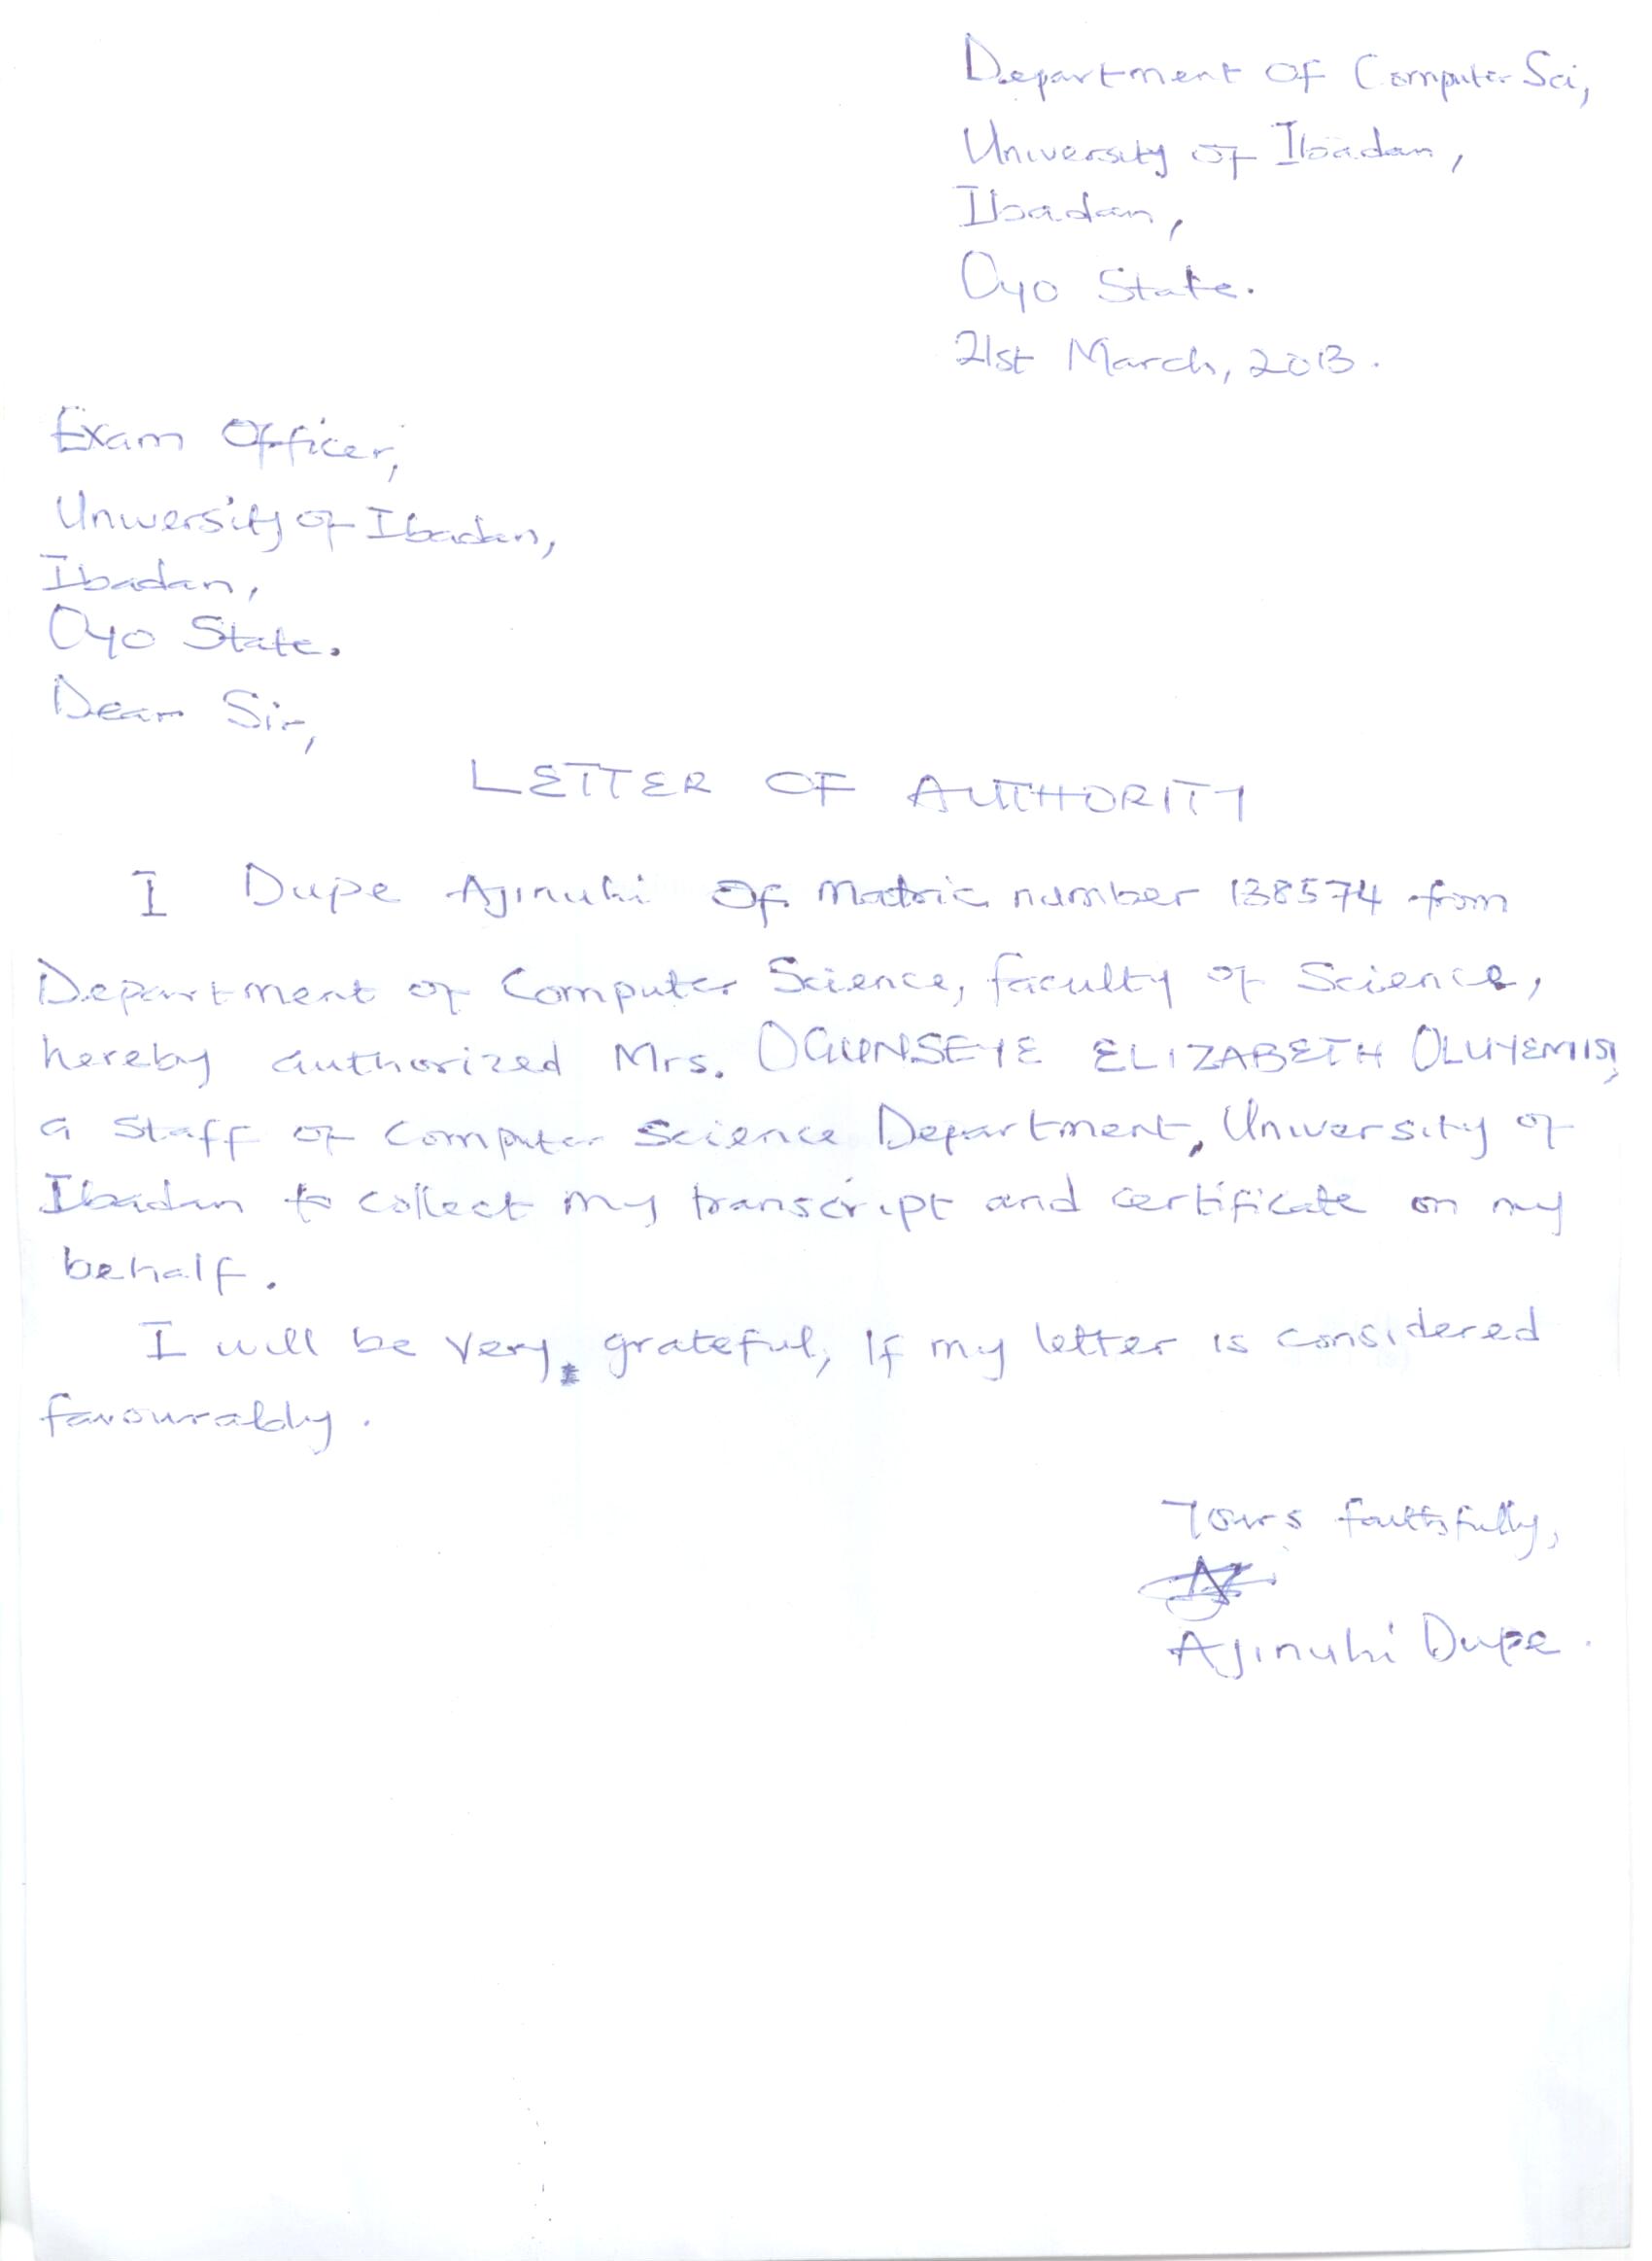 Department of Computer Sci,
University of Ibadan,
Ibadan,
Oyo State.
21st March, 2013.
Exam Officer,
University of Ibadan,
Ibadan,
Oyo State.
Dear Sir,
LETTER OF AUTHORITY
I Dupe Ajinuhi of Matric number 138574 from
Department of Computer Science, faculty of Science,
hereby authorized Mrs. OGUNSEYE ELIZABETH OLUYEMISI,
a Staff of Computer Science Department, University of
Ibadan to collect my transcript and certificate on my
behalf.
I will be very grateful, If my letter is considered
favourably.
Yours faithfully,
Ajinuhi Dupe.